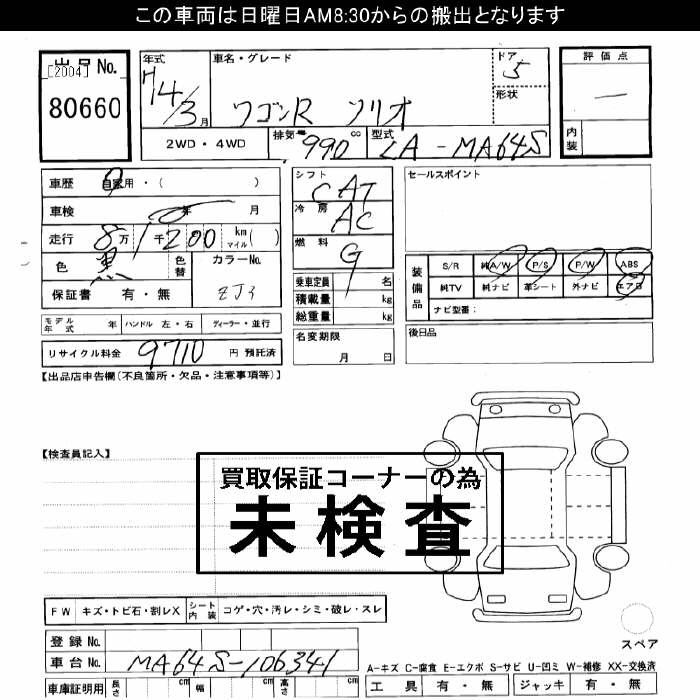 この車両は日曜日AM8:30からの搬出となります
出品 No.
[2004]
80660
年式
H14/3月
車名・グレード
ワゴンR ソリオ
ドア
5
形状
評価点
—
内装
2WD・4WD
排気量 990 cc
型式 LA-MA64S
車歴 自家用・( )
車検 年 月
走行 8万1千200 km マイル( )
色 黒
色替
カラーNo.
ZJ3
保証書 有・無
シフト
CAT
冷房
AC
燃料
G
乗車定員 名
積載量 kg
総重量 kg
セールスポイント
装備品
S/R 純A/W P/S P/W ABS
純TV 純ナビ 革シート 外ナビ エアB
ナビ型番:
モデル年式 年
ハンドル 左・右
ディーラー・並行
名変期限
月 日
後日品
リサイクル料金 9710 円 預託済
【出品店申告欄(不良箇所・欠品・注意事項等)】
【検査員記入】
買取保証コーナーの為
未検査
FW キズ・トビ石・割レX
シート内装 コゲ・穴・汚レ・シミ・破レ・スレ
登録 No.
車台 No. MA64S-106341
車庫証明用 長さ cm 幅 cm 高さ cm
スペア
A-キズ C-腐食 E-エクボ S-サビ U-凹ミ W-補修 XX-交換済
工具 有・無 ジャッキ 有・無